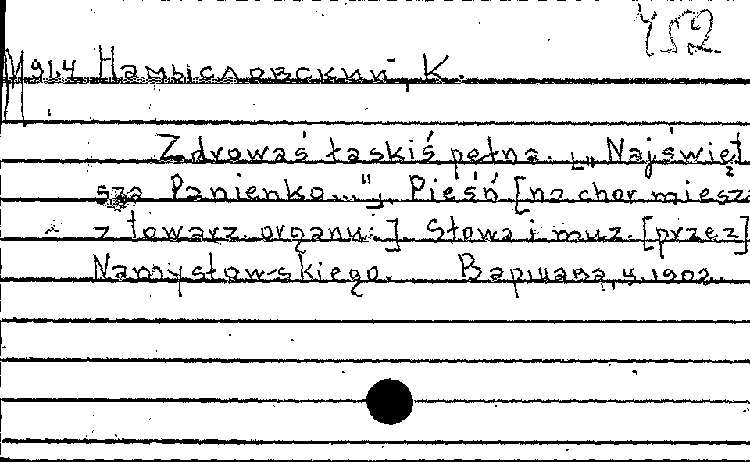 452
М914 Намысловский, К.
Zdrowaś łaskiś pełna. [„Najświęt
sza Panienko..."]. Pieśń [na chór miesz.
z towarz. organu.]. Słowa i muz. [przez]
Namysłowskiego. Варшава, ц. 1902.